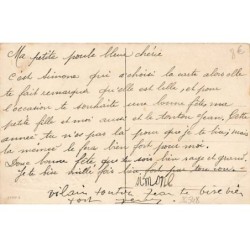 Ma petite poule bleue chérie
c'est Simone qui a choisi la carte alors elle
te fait remarquer qu'elle est belle, et pour
l'occasion te souhaite une bonne fête ma
petite fille et moi aussi et le tonton Jean, Cette
année tu n'es pas là pour que je te
même le faire bien fort pour moi.
Donc bonne fête, que tu sois bien sage et grande.
Je te bise mille fois bien fort par ton
Simone
vilain tonton Jean te bise bien
fort